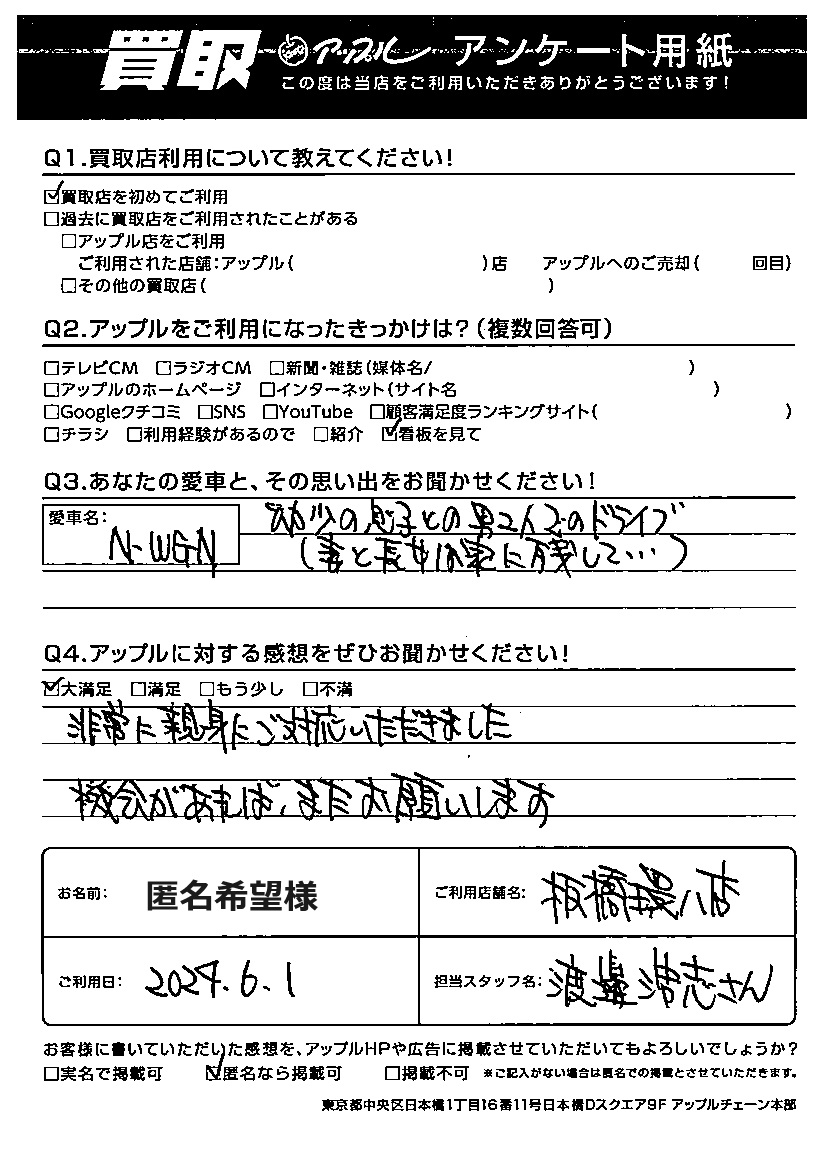 買取 アップル アンケート用紙
この度は当店をご利用いただきありがとうございます!
Q1.買取店利用について教えてください!
☑買取店を初めてご利用
□過去に買取店をご利用されたことがある
□アップル店をご利用
ご利用された店舗:アップル( )店 アップルへのご売却( 回目)
□その他の買取店( )
Q2.アップルをご利用になったきっかけは?(複数回答可)
□テレビCM □ラジオCM □新聞・雑誌(媒体名/ )
□アップルのホームページ □インターネット(サイト名 )
□Googleクチコミ □SNS □YouTube □顧客満足度ランキングサイト( )
□チラシ □利用経験があるので □紹介 ☑看板を見て
Q3.あなたの愛車と、その思い出をお聞かせください!
愛車名: N-WGN
"幼少の息子との男2人でのドライブ"
(妻と長女は家に残して…)
Q4.アップルに対する感想をぜひお聞かせください!
☑大満足 □満足 □もう少し □不満
非常に親身にご対応いただきました
機会があれば、またお願いします
お名前: 匿名希望様 ご利用店舗名: 板橋環八店
ご利用日: 2024.6.1 担当スタッフ名: 渡邊浩志さん
お客様に書いていただいた感想を、アップルHPや広告に掲載させていただいてもよろしいでしょうか?
□実名で掲載可 ☑匿名なら掲載可 □掲載不可 ※ご記入がない場合は匿名での掲載とさせていただきます。
東京都中央区日本橋1丁目16番11号日本橋Dスクエア9F アップルチェーン本部